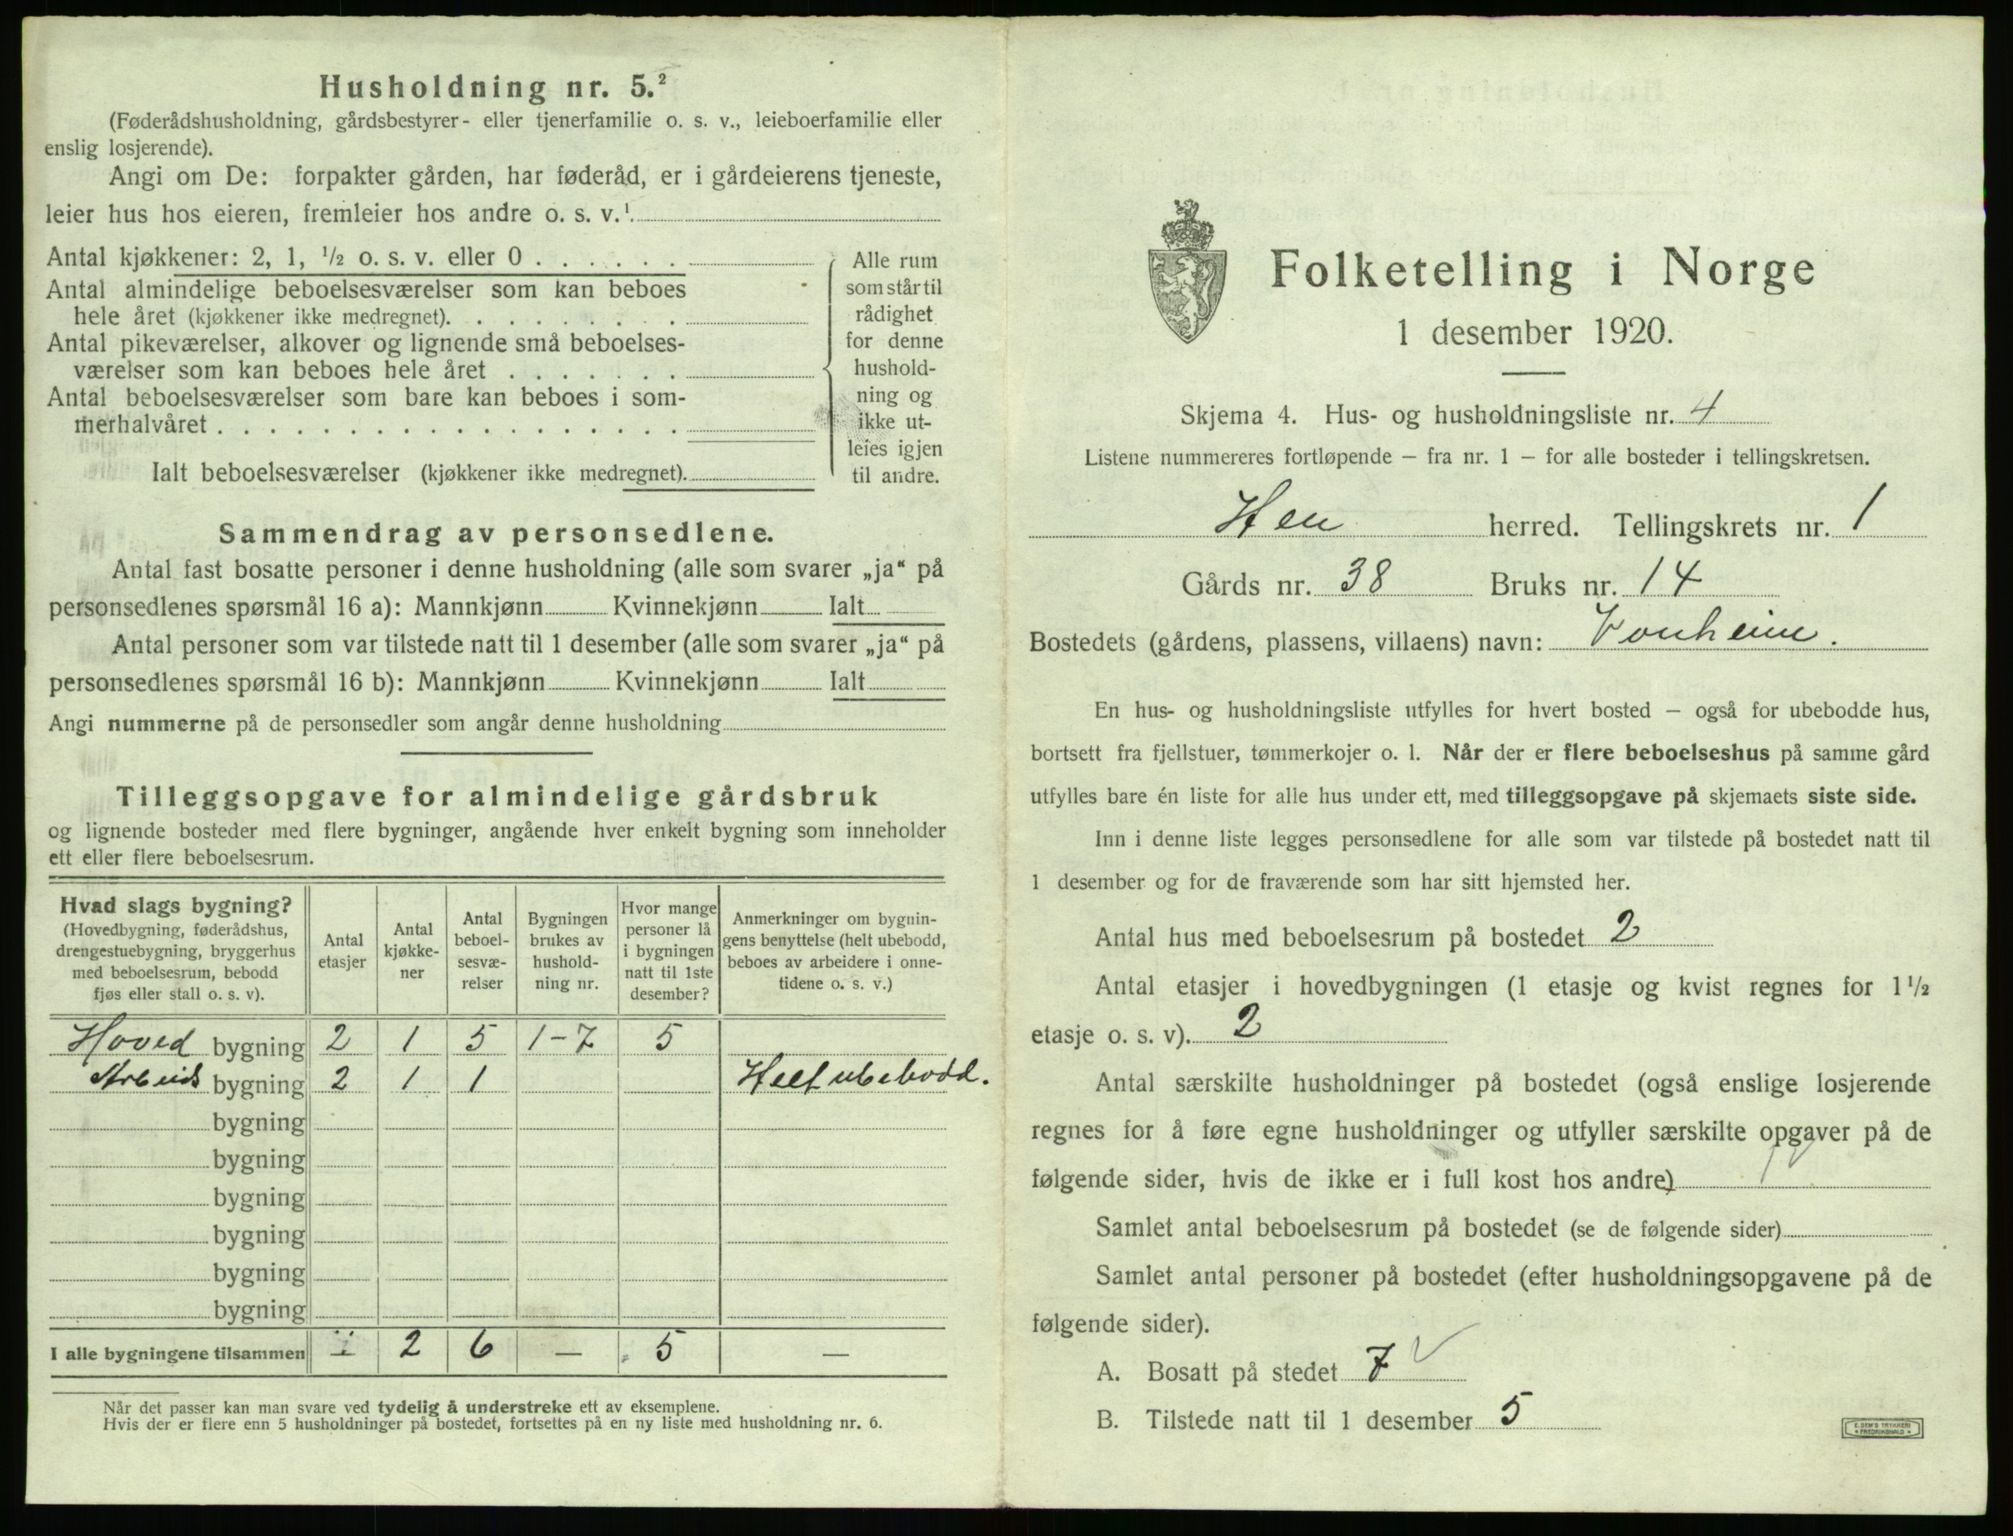 Husholdning nr. 5.²
(Føderådshusholdning, gårdsbestyrer- eller tjenerfamilie o. s. v., leieboerfamilie eller
enslig losjerende).
Angi om De: forpakter gården, har føderåd, er i gårdeierens tjeneste,
leier hus hos eieren, fremleier hos andre o. s. v.¹
Antal kjøkkener: 2, 1, ½ o. s. v. eller 0 . . . . . .
Antal almindelige beboelsesværelser som kan beboes
hele året (kjøkkener ikke medregnet). . . . . . . . .
Antal pikeværelser, alkover og lignende små beboelses-
værelser som kan beboes hele året . . . . . . .
Antal beboelsesværelser som bare kan beboes i som-
merhalvåret . . . . . . . . . . . . . . . . . .
Ialt beboelsesværelser (kjøkkener ikke medregnet).
Alle rum
som står til
rådighet
for denne
hushold-
ning og
ikke ut-
leies igjen
til andre.
Sammendrag av personsedlene.
Antal fast bosatte personer i denne husholdning (alle som svarer „ja“ på
personsedlenes spørsmål 16 a): Mannkjønn Kvinnekjønn Ialt
Antal personer som var tilstede natt til 1 desember (alle som svarer „ja“ på
personsedlenes spørsmål 16 b): Mannkjønn Kvinnekjønn Ialt
Angi nummerne på de personsedler som angår denne husholdning
Tilleggsopgave for almindelige gårdsbruk
og lignende bosteder med flere bygninger, angående hver enkelt bygning som inneholder
ett eller flere beboelsesrum.
Hvad slags bygning?
(Hovedbygning, føderådshus,
drengestuebygning, bryggerhus
med beboelsesrum, bebodd
fjøs eller stall o. s. v).
Antal
etasjer
Antal
kjøkke-
ner
Antal
beboel-
sesvæ-
relser
Bygningen
brukes av
hushold-
ning nr.
Hvor mange
personer lå
i bygningen
natt til 1ste
desember?
Anmerkninger om bygnin-
gens benyttelse (helt ubebodd,
beboes av arbeidere i onne-
tidene o. s. v.)
Hoved bygning 2 1 5 1-7 5
Arbeids bygning 2 1 1 Helt ubebodd.
bygning
bygning
bygning
bygning
bygning
bygning
I alle bygningene tilsammen 2 6 — 5 —
Når det passer kan man svare ved tydelig å understreke ett av eksemplene.
Hvis der er flere enn 5 husholdninger på bostedet, fortsettes på en ny liste med husholdning nr. 6.
Folketelling i Norge
1 desember 1920.
Skjema 4. Hus- og husholdningsliste nr. 4
Listene nummereres fortløpende – fra nr. 1 – for alle bosteder i tellingskretsen.
Hen herred. Tellingskrets nr. 1
Gårds nr. 38 Bruks nr. 14
Bostedets (gårdens, plassens, villaens) navn: Vonheim.
En hus- og husholdningsliste utfylles for hvert bosted – også for ubebodde hus,
bortsett fra fjellstuer, tømmerkojer o. l. Når der er flere beboelseshus på samme gård
utfylles bare én liste for alle hus under ett, med tilleggsopgave på skjemaets siste side.
Inn i denne liste legges personsedlene for alle som var tilstede på bostedet natt til
1 desember og for de fraværende som har sitt hjemsted her.
Antal hus med beboelsesrum på bostedet 2
Antal etasjer i hovedbygningen (1 etasje og kvist regnes for 1½
etasje o. s. v). 2
Antal særskilte husholdninger på bostedet (også enslige losjerende
regnes for å føre egne husholdninger og utfyller særskilte opgaver på de
følgende sider, hvis de ikke er i full kost hos andre) 1
Samlet antal beboelsesrum på bostedet (se de følgende sider)
Samlet antal personer på bostedet (efter husholdningsopgavene på de
følgende sider).
A. Bosatt på stedet 7
B. Tilstede natt til 1 desember 5
E. SEM'S TRYKKERI
FREDRIKSHALD